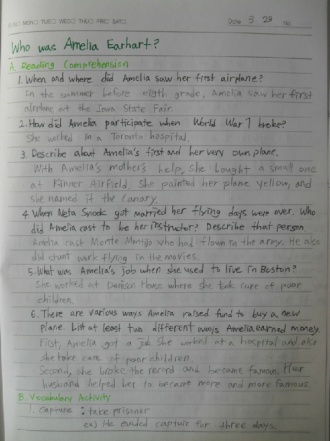 Date 3 23
Who was Amelia Earhart?
A. Reading Comprehension
1. When and where did Amelia saw her first airplane?
In the summer before eigth grade, Amelia saw her first
airplane at the Iowa State Fair.
2. How did Amelia participate when World War 1 broke?
She worked in a Toronto hospital.
3. Describe about Amelia's first and her very own plane.
With Amelia's mother's help, she bought a small one
at Kinner Airfield. She painted her plane yellow, and
she named it the Canary.
4. When Neta Snook got married her flying days were over. Who
did Amelia cast to be her instructor? Describe that person
Amelia cast Monte Montijo who had flown in the army. He also
did stunt work flying in the movies.
5. What was Amelia's job when she used to live in Boston?
She worked at Denison House where she took care of poor
children.
6. There are various ways Amelia raised fund to buy a new
plane. List at least two different ways Amelia earned money.
First, Amelia got a job she worked at a hospital and also
she take care of poor children.
Second, she broke the record and became famous. Her
husband helped her to became more and more famous.
B. Vocabulary Activity
1. capture : take prisoner
ex) He evaded capture for three days.